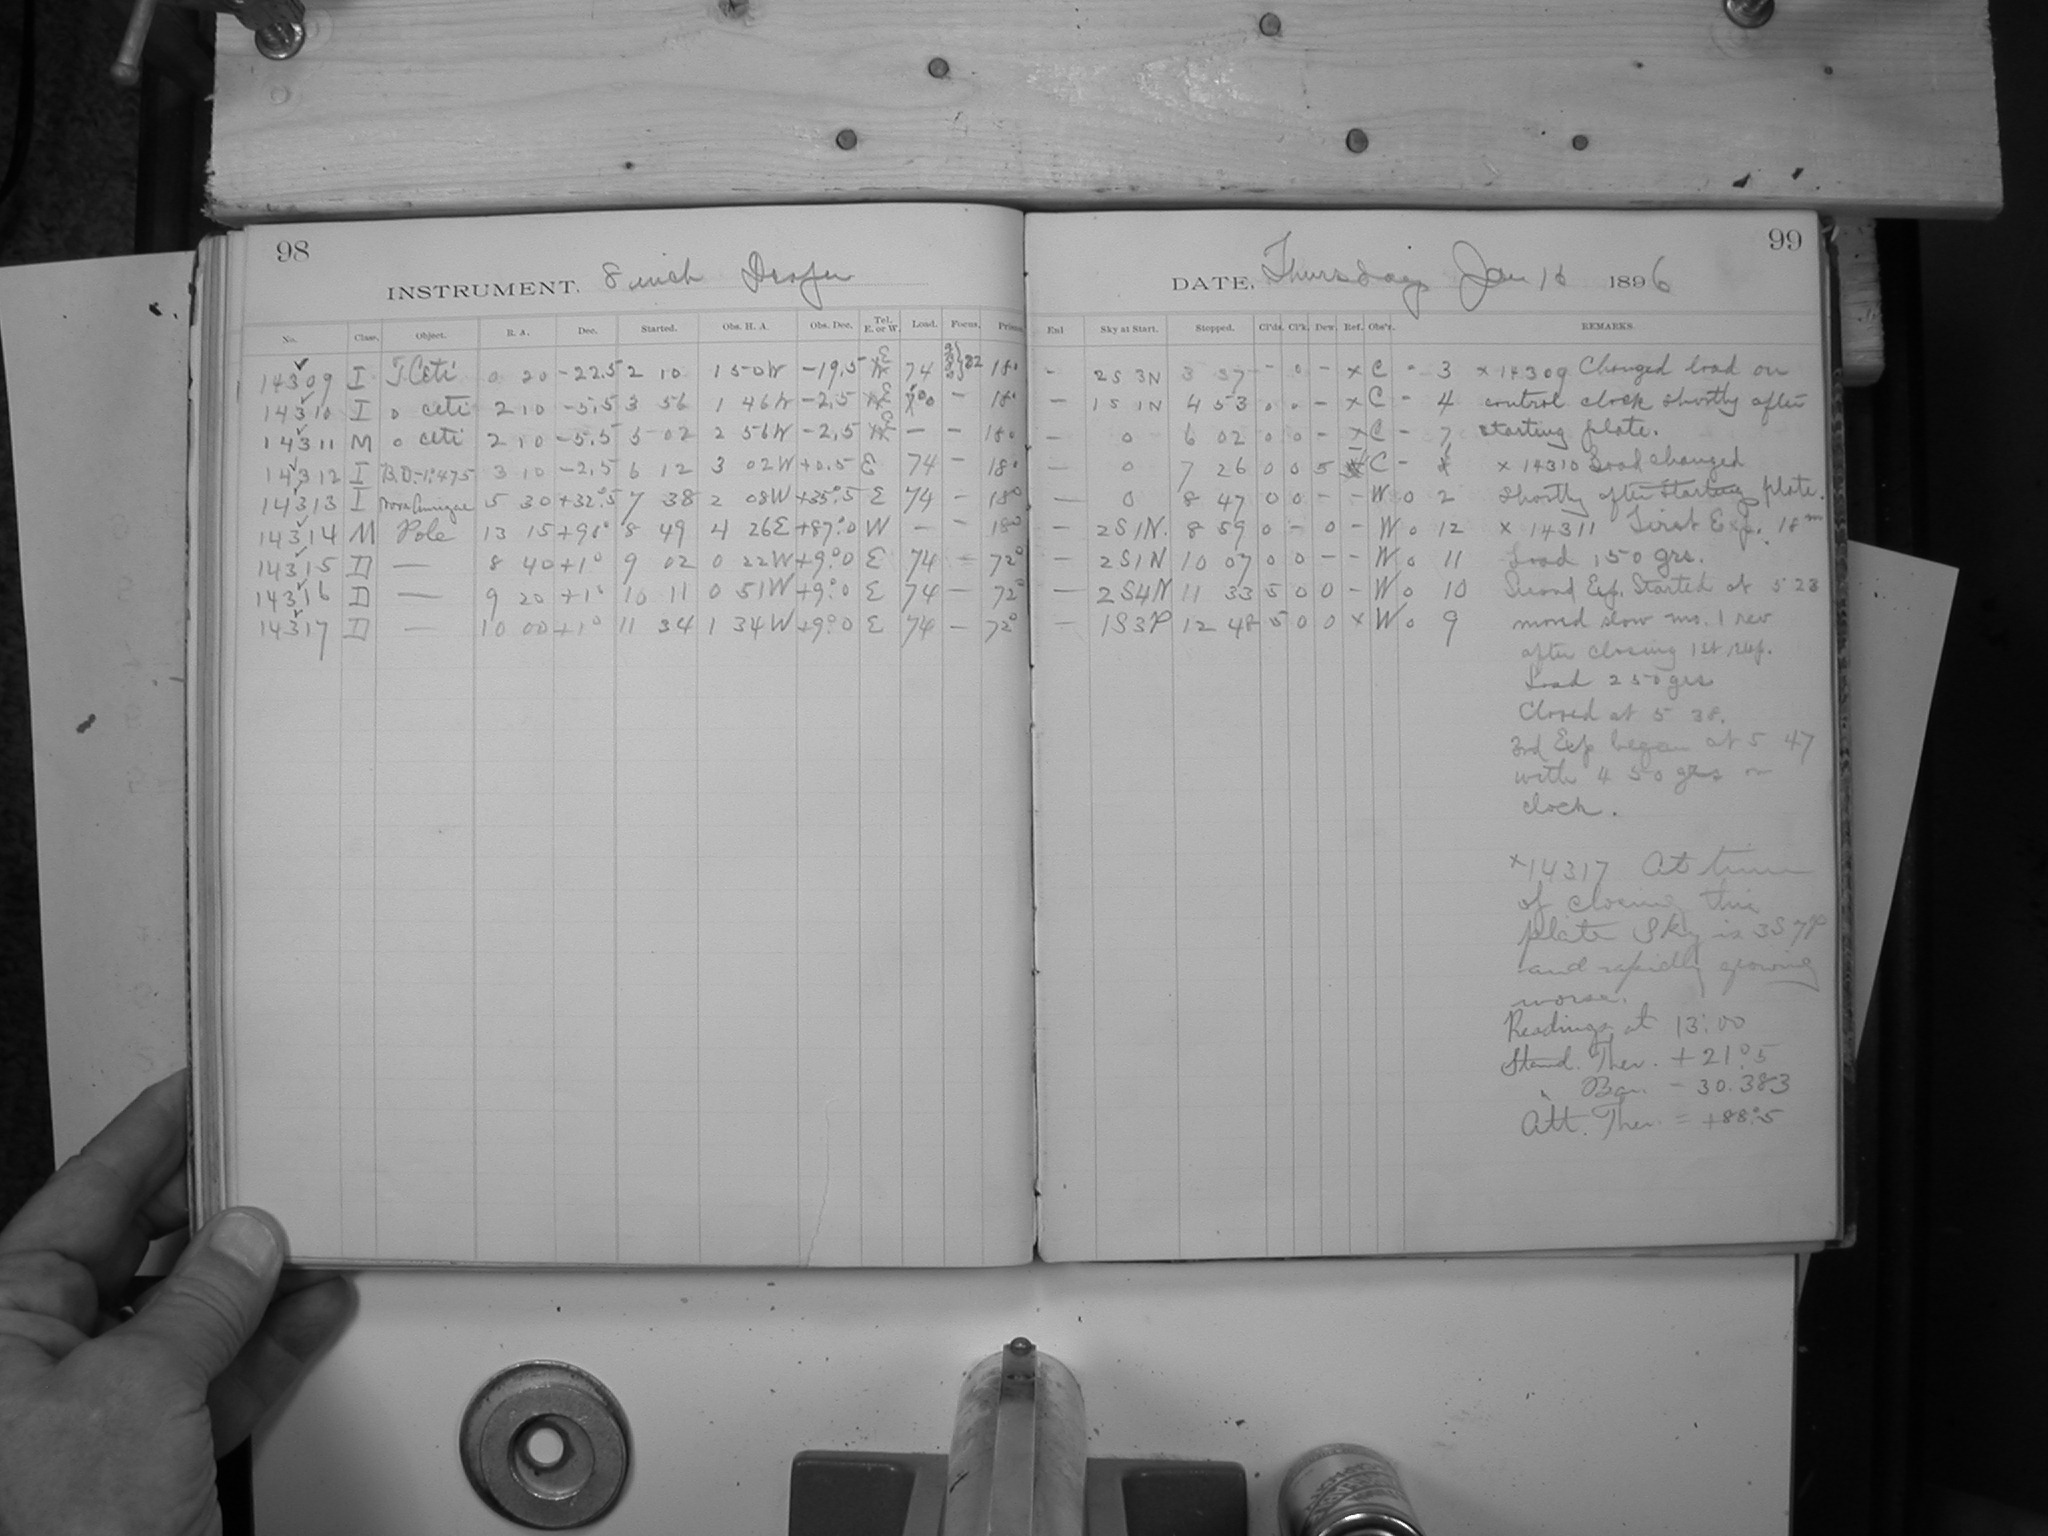 98
INSTRUMENT, 8 inch Draper
No. Class. Object. R. A. Dec. Started. Obs. H. A. Obs. Dec. Tel. E. or W. Load. Focus. Prism
14309 I T. Ceti 0 20 -22.5 2 10 1 50W -19.5 E 74 22 18°
14310 I o ceti 2 10 -5.5 3 56 1 46W -2.5 E 700 - 18°
14311 M o ceti 2 10 -5.5 5 02 2 56W -2.5 E - - 18°
14312 I B.D.-1°475 3 10 -2.5 6 12 3 02W +0.5 E 74 - 18°
14313 I Nova Aurigae 5 30 +32°.5 7 38 2 08W +35°.5 E 74 - 18°
14314 M Pole 13 15 +90° 8 49 4 26E +87°.0 W - - 18°
14315 D — 8 40 +1° 9 02 0 22W +9°.0 E 74 - 72°
14316 D — 9 20 +1° 10 11 0 51W +9°.0 E 74 - 72°
14317 D — 10 00 +1° 11 34 1 34W +9°.0 E 74 - 72°
99
DATE, Thursday Jan 16 1896
Enl Sky at Start. Stopped. Cl'ds. Cl'k. Dew. Ref. Obs'r. REMARKS.
- 2S 3N 3 37 - 0 - x C - 3 x 14309 Changed load on
- 1S 1N 4 53 0 0 - x C - 4 control clock shortly after
- 0 6 02 0 0 - x C - 7 starting plate.
- 0 7 26 0 0 5 C - x 14310 Load changed
- 0 8 47 0 0 - - W 0 2 shortly after starting plate.
- 2S1N. 8 59 0 - 0 - W 0 12 x 14311 First Exp. 18m
- 2S1N 10 07 0 0 - - W 0 11 Load 150 grs.
- 2S4N 11 33 5 0 0 - W 0 10 Second Exp. Started at 5 23
- 1S3P 12 48 5 0 0 x W 0 9 moved slow mo. 1 rev
after closing 1st exp.
Load 250 grs
Closed at 5 38.
3rd Exp began at 5 47
with 450 grs on
clock.
x14317 At time
of closing this
plate Sky is 3S7P
and rapidly growing
worse.
Readings at 13:00
Stand. Ther. +21°.5
Bar. - 30.383
Att. Ther. = +88°.5